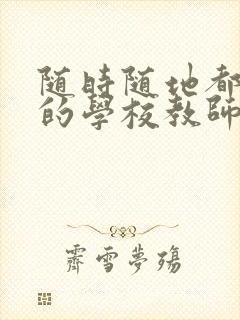 随時随地都
的學校教師
霽雪夢殤